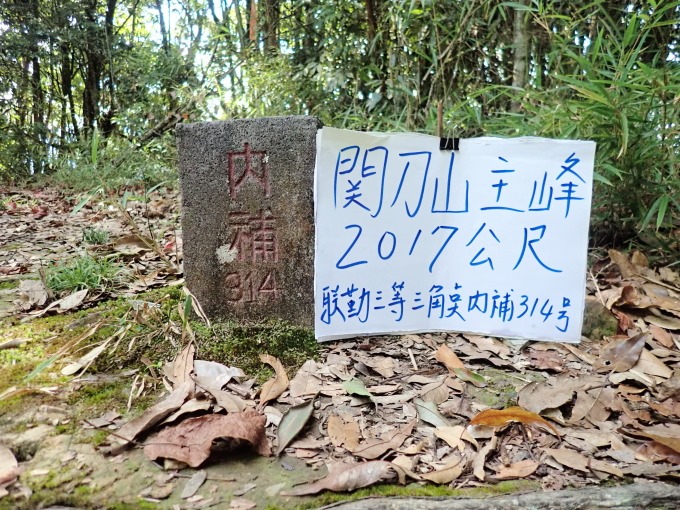 内
補
314
関刀山主峰
2017公尺
联勤三等三角奌内補314号